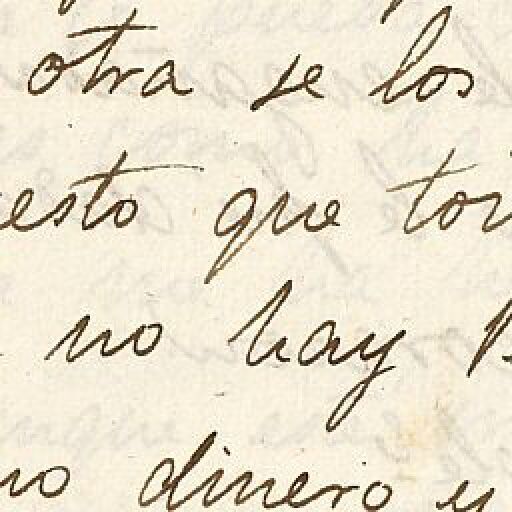 otra se los
esto que to
no hay
no dinero y